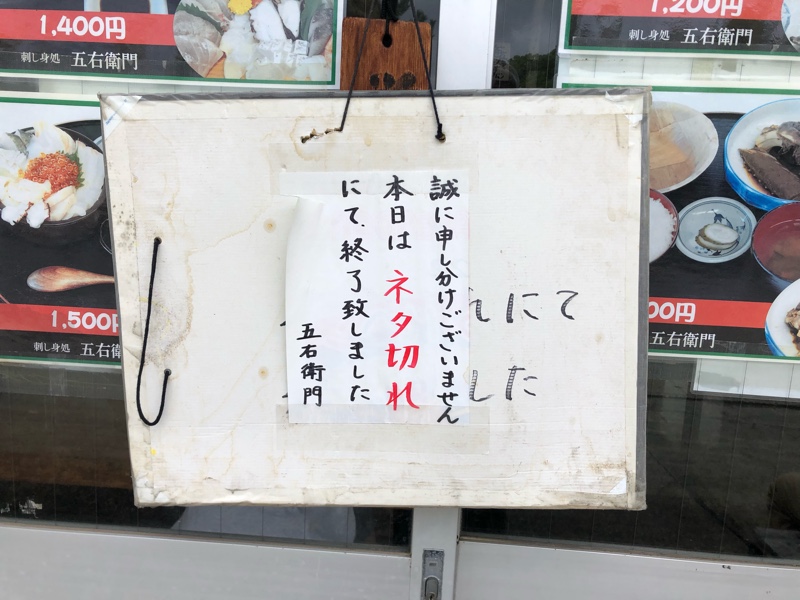 1,400円
刺し身処 五右衛門
1,200円
刺し身処 五右衛門
誠に申し分けございません
本日は ネタ切れ
にて、終了致しました
五右衛門
れにて
した
1,500円
刺し身処 五右衛
00円
五右衛門